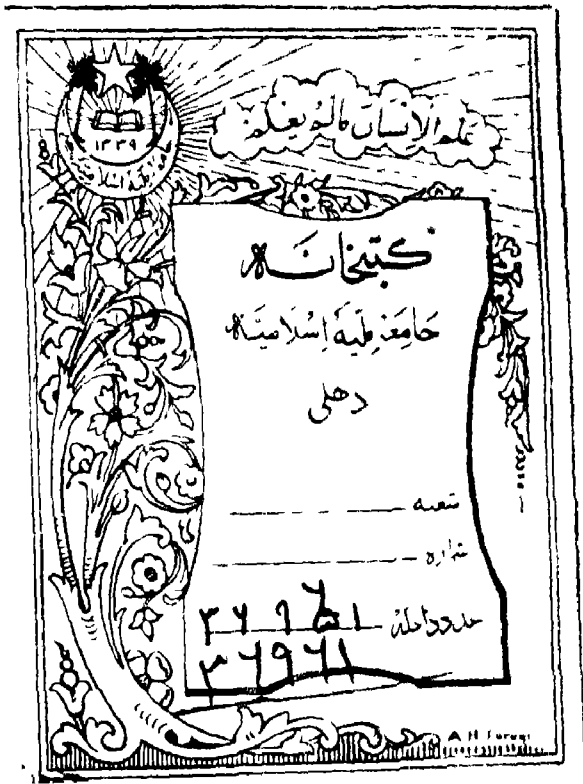 علم الإنسان ما لم يعلم
۱۳۳۹
کتبخانہ
جامعہ ملیہ اسلامیہ
دھلی
شعبہ
شمارہ
عدد داخلہ
۳۶۹۶۱
A H Faruqi